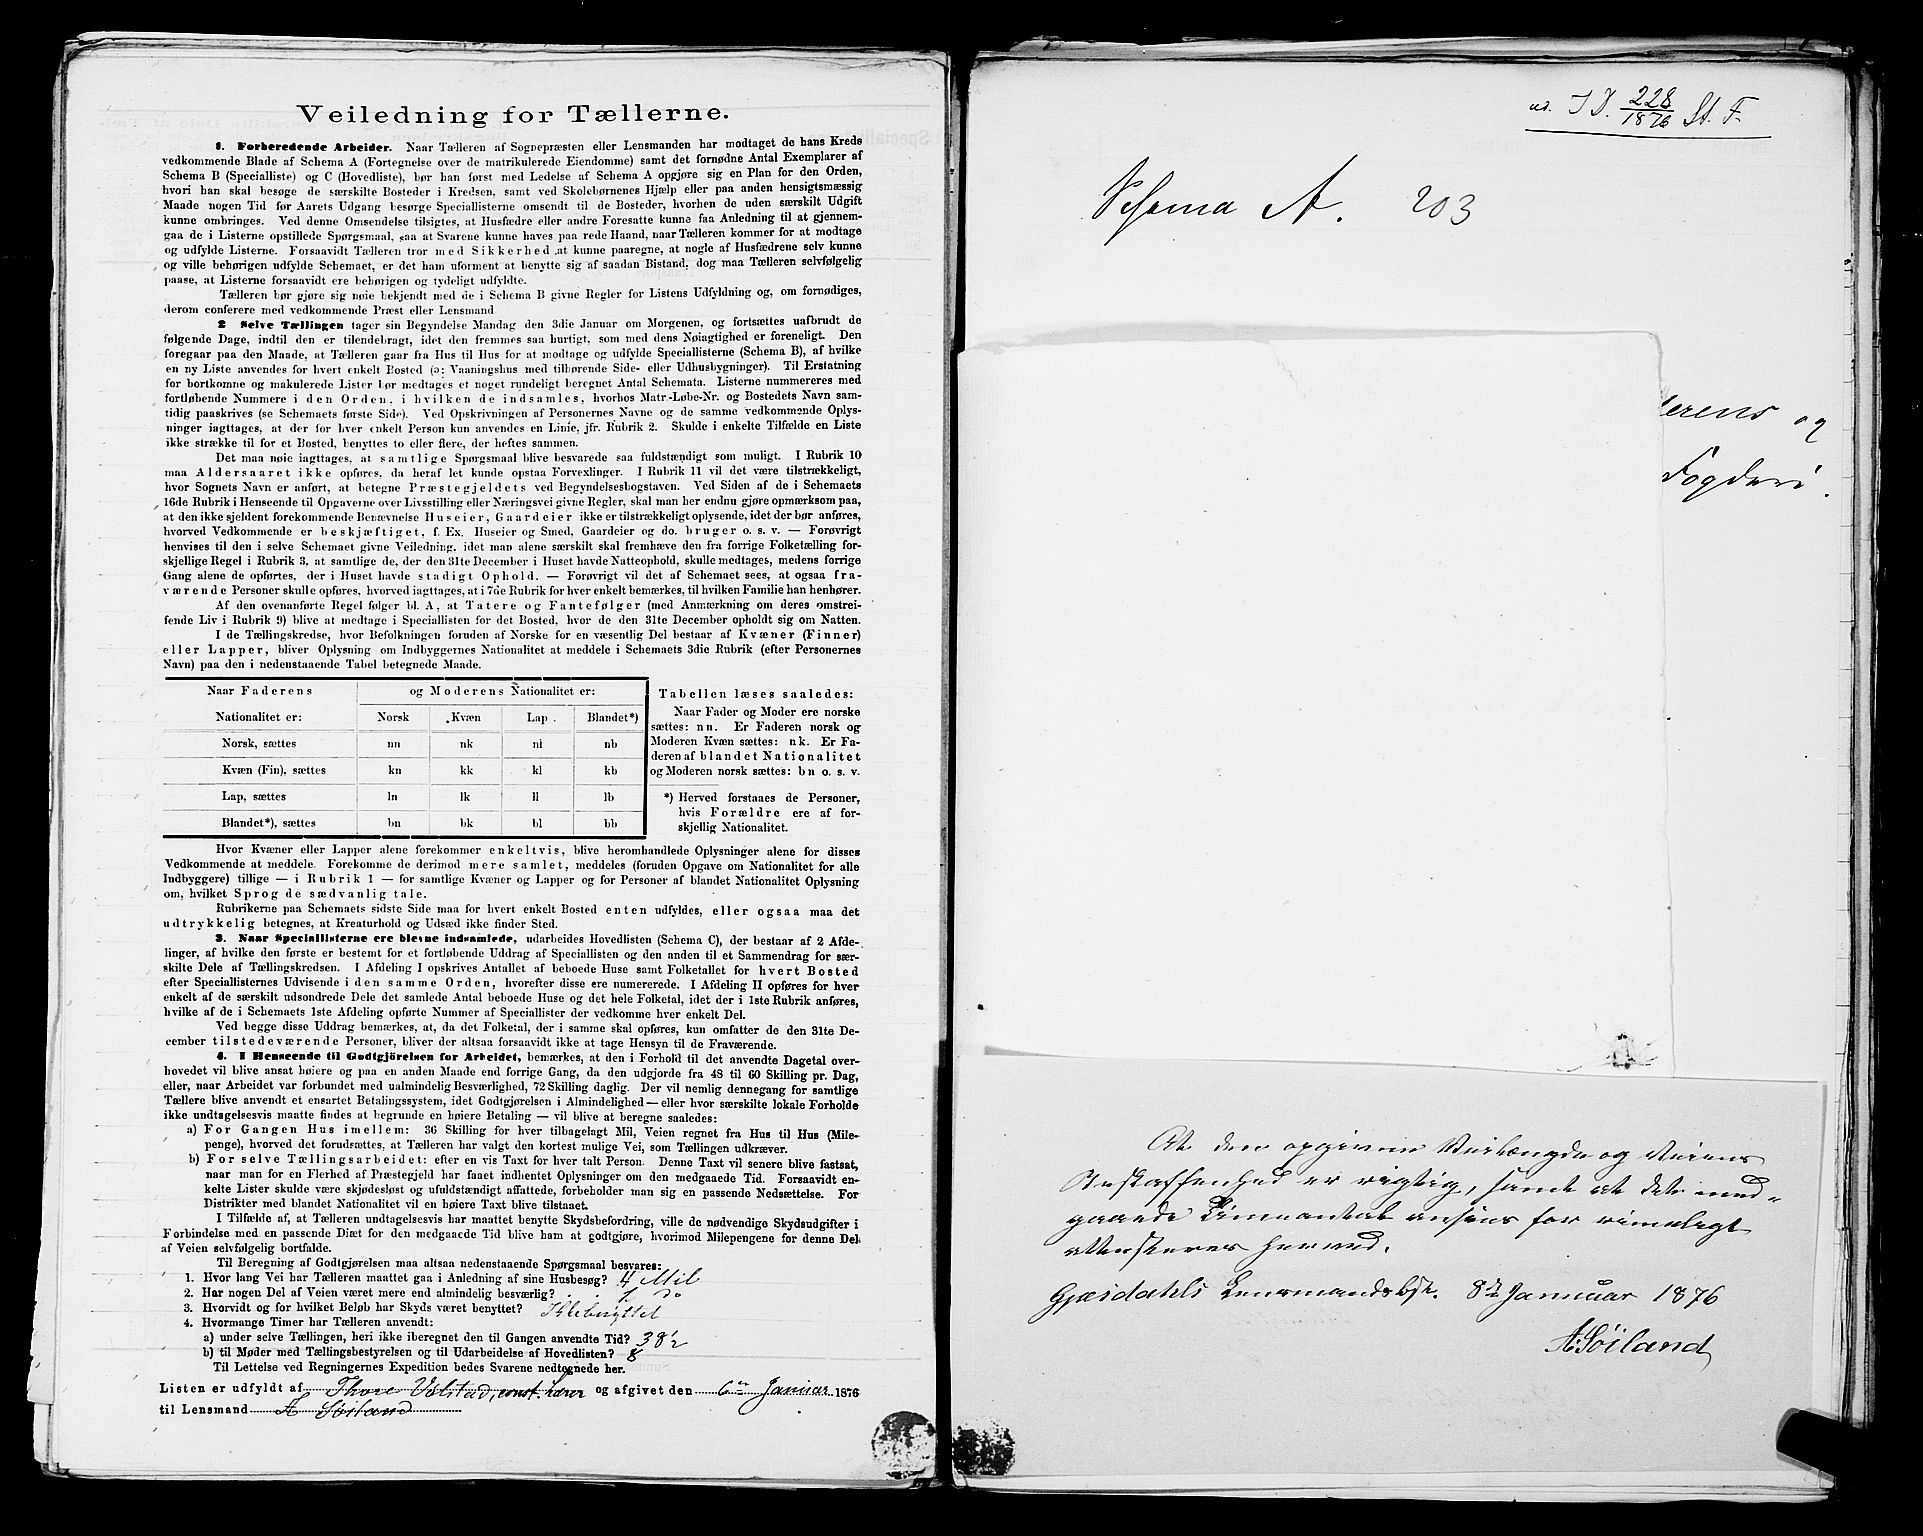 Veiledning for Tællerne.
1. Forberedende Arbeider. Naar Tælleren af Sognepræsten eller Lensmanden har modtaget de hans Kreds
vedkommende Blade af Schema A (Fortegnelse over de matrikulerede Eiendomme) samt det fornødne Antal Exemplarer af
Schema B (Specialliste) og C (Hovedliste), bør han først med Ledelse af Schema A opgjøre sig en Plan for den Orden,
hvori han skal besøge de særskilte Bosteder i Kredsen, samt ved Skolebørnenes Hjælp eller paa anden hensigtsmæssig
Maade nogen Tid før Aarets Udgang besørge Speciallisterne omsendt til de Bosteder, hvorhen de uden særskilt Udgift
kunne ombringes. Ved denne Omsendelse tilsigtes, at Husfædre eller andre Foresatte kunne faa Anledning til at gjennem-
gaa de i Listerne opstillede Spørgsmaal, saa at Svarene kunne haves paa rede Haand, naar Tælleren kommer for at modtage
og udfylde Listerne. Forsaavidt Tælleren tror med Sikkerhed at kunne paaregne, at nogle af Husfædrene selv kunne
og ville behørigen udfylde Schemaet, er det ham uforment at benytte sig af saadan Bistand, dog maa Tælleren selvfølgelig
paase, at Listerne forsaavidt ere behørigen og tydeligt udfyldte.
Tælleren bør gjøre sig nøie bekjendt med de i Schema B givne Regler for Listens Udfyldning og, om fornødiges,
derom conferere med vedkommende Præst eller Lensmand
2 Selve Tællingen tager sin Begyndelse Mandag den 3die Januar om Morgenen, og fortsættes uafbrudt de
følgende Dage, indtil den er tilendebragt, idet den fremmes saa hurtigt, som med dens Nøiagtighed er foreneligt. Den
foregaar paa den Maade, at Tælleren gaar fra Hus til Hus for at modtage og udfylde Speciallisterne (Schema B), af hvilke
en ny Liste anvendes for hvert enkelt Bosted (ɔ: Vaaningshus med tilhørende Side- eller Udhusbygninger). Til Erstatning
for bortkomne og makulerede Lister bør medtages et noget rundeligt beregnet Antal Schemata. Listerne nummereres med
fortløbende Nummere i den Orden, i hvilken de indsamles, hvorhos Matr.-Løbe-Nr. og Bostedets Navn sam-
tidig paaskrives (se Schemaets første Side). Ved Opskrivningen af Personernes Navne og de samme vedkommende Oplys-
ninger iagttages, at der for hver enkelt Person kun anvendes en Linie, jfr. Rubrik 2. Skulde i enkelte Tilfælde en Liste
ikke strække til for et Bosted, benyttes to eller flere, der heftes sammen.
Det maa nøie iagttages, at samtlige Spørgsmaal blive besvarede saa fuldstændigt som muligt. I Rubrik 10
maa Aldersaaret ikke opføres, da heraf let kunde opstaa Forvexlinger. I Rubrik 11 vil det være tilstrækkeligt,
hvor Sognets Navn er anført, at betegne Præstegjeldets ved Begyndelsesbogstaven. Ved Siden af de i Schemaets
16de Rubrik i Henseende til Opgaverne over Livsstilling eller Næringsvei givne Regler, skal man her endnu gjøre opmærksom paa,
at den ikke sjeldent forekommende Benævnelse Huseier, Gaardeier ikke er tilstrækkeligt oplysende, idet der bør anføres,
hvorved Vedkommende er beskjæftiget, f. Ex. Huseier og Smed, Gaardeier og do. bruger o. s. v. — Forøvrigt
henvises til den i selve Schemaet givne Veiledning, idet man alene særskilt skal fremhæve den fra forrige Folketælling for-
skjellige Regel i Rubrik 3, at samtlige de, der den 31te December i Huset havde Natteophold, skulle medtages, medens forrige
Gang alene de opførtes, der i Huset havde stadigt Ophold. — Forøvrigt vil det af Schemaet sees, at ogsaa fra-
værende Personer skulle opføres, hvorved iagttages, at i 7de Rubrik for hver enkelt bemærkes, til hvilken Familie han henhører.
Af den ovenanførte Regel følger bl. A, at Tatere og Fantefølger (med Anmærkning om deres omstrei-
fende Liv i Rubrik 9) blive at medtage i Speciallisten for det Bosted, hvor de den 31te December opholdt sig om Natten.
I de Tællingskredse, hvor Befolkningen foruden af Norske for en væsentlig Del bestaar af Kvæner (Finner)
eller Lapper, bliver Oplysning om Indbyggernes Nationalitet at meddele i Schemaets 3die Rubrik (efter Personernes
Navn) paa den i nedenstaaende Tabel betegnede Maade.
Naar Faderens og Moderens Nationalitet er:
Nationalitet er: Norsk Kvæn Lap Blandet*)
Norsk, sættes nn nk nl nb
Kvæn (Fin), sættes kn kk kl kb
Lap, sættes ln lk ll lb
Blandet*), sættes bn bk bl bb
Tabellen læses saaledes:
Naar Fader og Moder ere norske
sættes: nn. Er Faderen norsk og
Moderen Kvæn sættes: nk. Er Fa-
deren af blandet Nationalitet
og Moderen norsk sættes: bn o. s. v.
*) Herved forstaaes de Personer,
hvis Forældre ere af for-
skjellig Nationalitet.
Hvor Kvæner eller Lapper alene forekommer enkeltvis, blive heromhandlede Oplysninger alene for disses
Vedkommende at meddele. Forekomme de derimod mere samlet, meddeles (foruden Opgave om Nationalitet for alle
Indbyggere) tillige — i Rubrik 1 — for samtlige Kvæner og Lapper og for Personer af blandet Nationalitet Oplysning
om, hvilket Sprog de sædvanlig tale.
Rubrikerne paa Schemaets sidste Side maa for hvert enkelt Bosted enten udfyldes, eller ogsaa maa det
udtrykkelig betegnes, at Kreaturhold og Udsæd ikke finder Sted.
3. Naar Speciallisterne ere blevne indsamlede, udarbeides Hovedlisten (Schema C), der bestaar af 2 Afde-
linger, af hvilke den første er bestemt for et fortløbende Uddrag af Speciallisten og den anden til et Sammendrag for sær-
skilte Dele af Tællingskredsen. I Afdeling I opskrives Antallet af beboede Huse samt Folketallet for hvert Bosted
efter Speciallisternes Udvisende i den samme Orden, hvorefter disse ere numererede. I Afdeling II opføres for hver
enkelt af de særskilt udsondrede Dele det samlede Antal beboede Huse og det hele Folketal, idet der i 1ste Rubrik anføres,
hvilke af de i Schemaets 1ste Afdeling opførte Nummer af Speciallister der vedkomme hver enkelt Del.
Ved begge disse Uddrag bemærkes, at, da det Folketal, der i samme skal opføres, kun omfatter de den 31te De-
cember tilstedeværende Personer, bliver der altsaa forsaavidt ikke at tage Hensyn til de Fraværende.
4. I Henseende til Godtgjörelsen for Arbeidet, bemærkes, at den i Forhold til det anvendte Dagetal over-
hovedet vil blive ansat høiere og paa en anden Maade end forrige Gang, da den udgjorde fra 48 til 60 Skilling pr. Dag,
eller, naar Arbeidet var forbundet med ualmindelig Besværlighed, 72 Skilling daglig. Der vil nemlig dennegang for samtlige
Tællere blive anvendt et ensartet Betalingssystem, idet Godtgjørelsen i Almindelighed — eller hvor særskilte lokale Forholde
ikke undtagelsesvis maatte findes at begrunde en høiere Betaling — vil blive at beregne saaledes:
a) For Gangen Hus imellem: 36 Skilling for hver tilbagelagt Mil, Veien regnet fra Hus til Hus (Mile-
penge), hvorved det forudsættes, at Tælleren har valgt den kortest mulige Vei, som Tællingen udkræver.
b) For selve Tællingsarbeidet: efter en vis Taxt for hver talt Person. Denne Taxt vil senere blive fastsat,
naar man for en Flerhed af Præstegjeld har faaet indhentet Oplysninger om den medgaaede Tid. Forsaavidt en-
kelte Lister skulde være skjødesløst og ufuldstændigt affattede, forbeholder man sig en passende Nedsættelse. For
Distrikter med blandet Nationalitet vil en høiere Taxt blive tilstaaet.
I Tilfælde af, at Tælleren undtagelsesvis har maattet benytte Skydsbefordring, ville de nødvendige Skydsudgifter i
Forbindelse med en passende Diæt for den medgaaede Tid blive ham at godtgjøre, hvorimod Milepengene for denne Del
af Veien selvfølgelig bortfalde.
Til Beregning af Godtgjørelsen maa altsaa nedenstaaende Spørgsmaal besvares:
1. Hvor lang Vei har Tælleren maattet gaa i Anledning af sine Husbesøg? 4 Mil
2. Har nogen Del af Veien været mere end almindelig besværlig?
3. Hvorvidt og for hvilket Beløb har Skyds været benyttet? Ikke benyttet
4. Hvormange Timer har Tælleren anvendt:
a) under selve Tællingen, heri ikke iberegnet den til Gangen anvendte Tid? 38½
b) til Møder med Tællingsbestyrelsen og til Udarbeidelse af Hovedlisten? 8
Til Lettelse ved Regningernes Expedition bedes Svarene nedtegnede her.
Listen er udfyldt af Thore Ulstad, const. Lærer og afgivet den 6te Januar 1876
til Lensmand A Söiland
ad. I D. 228/1876 St. F.
Schema A. 203
erens og
Fogderi.
At den opgivne Veilængde og Veiens
Beskaffenhed er rigtig, samt at det med-
gaaede Timeantal ansees for rimeligt
attesteres herved.
Gjæsdahls Lensmandsbst. 8de Januar 1876
A. Söiland